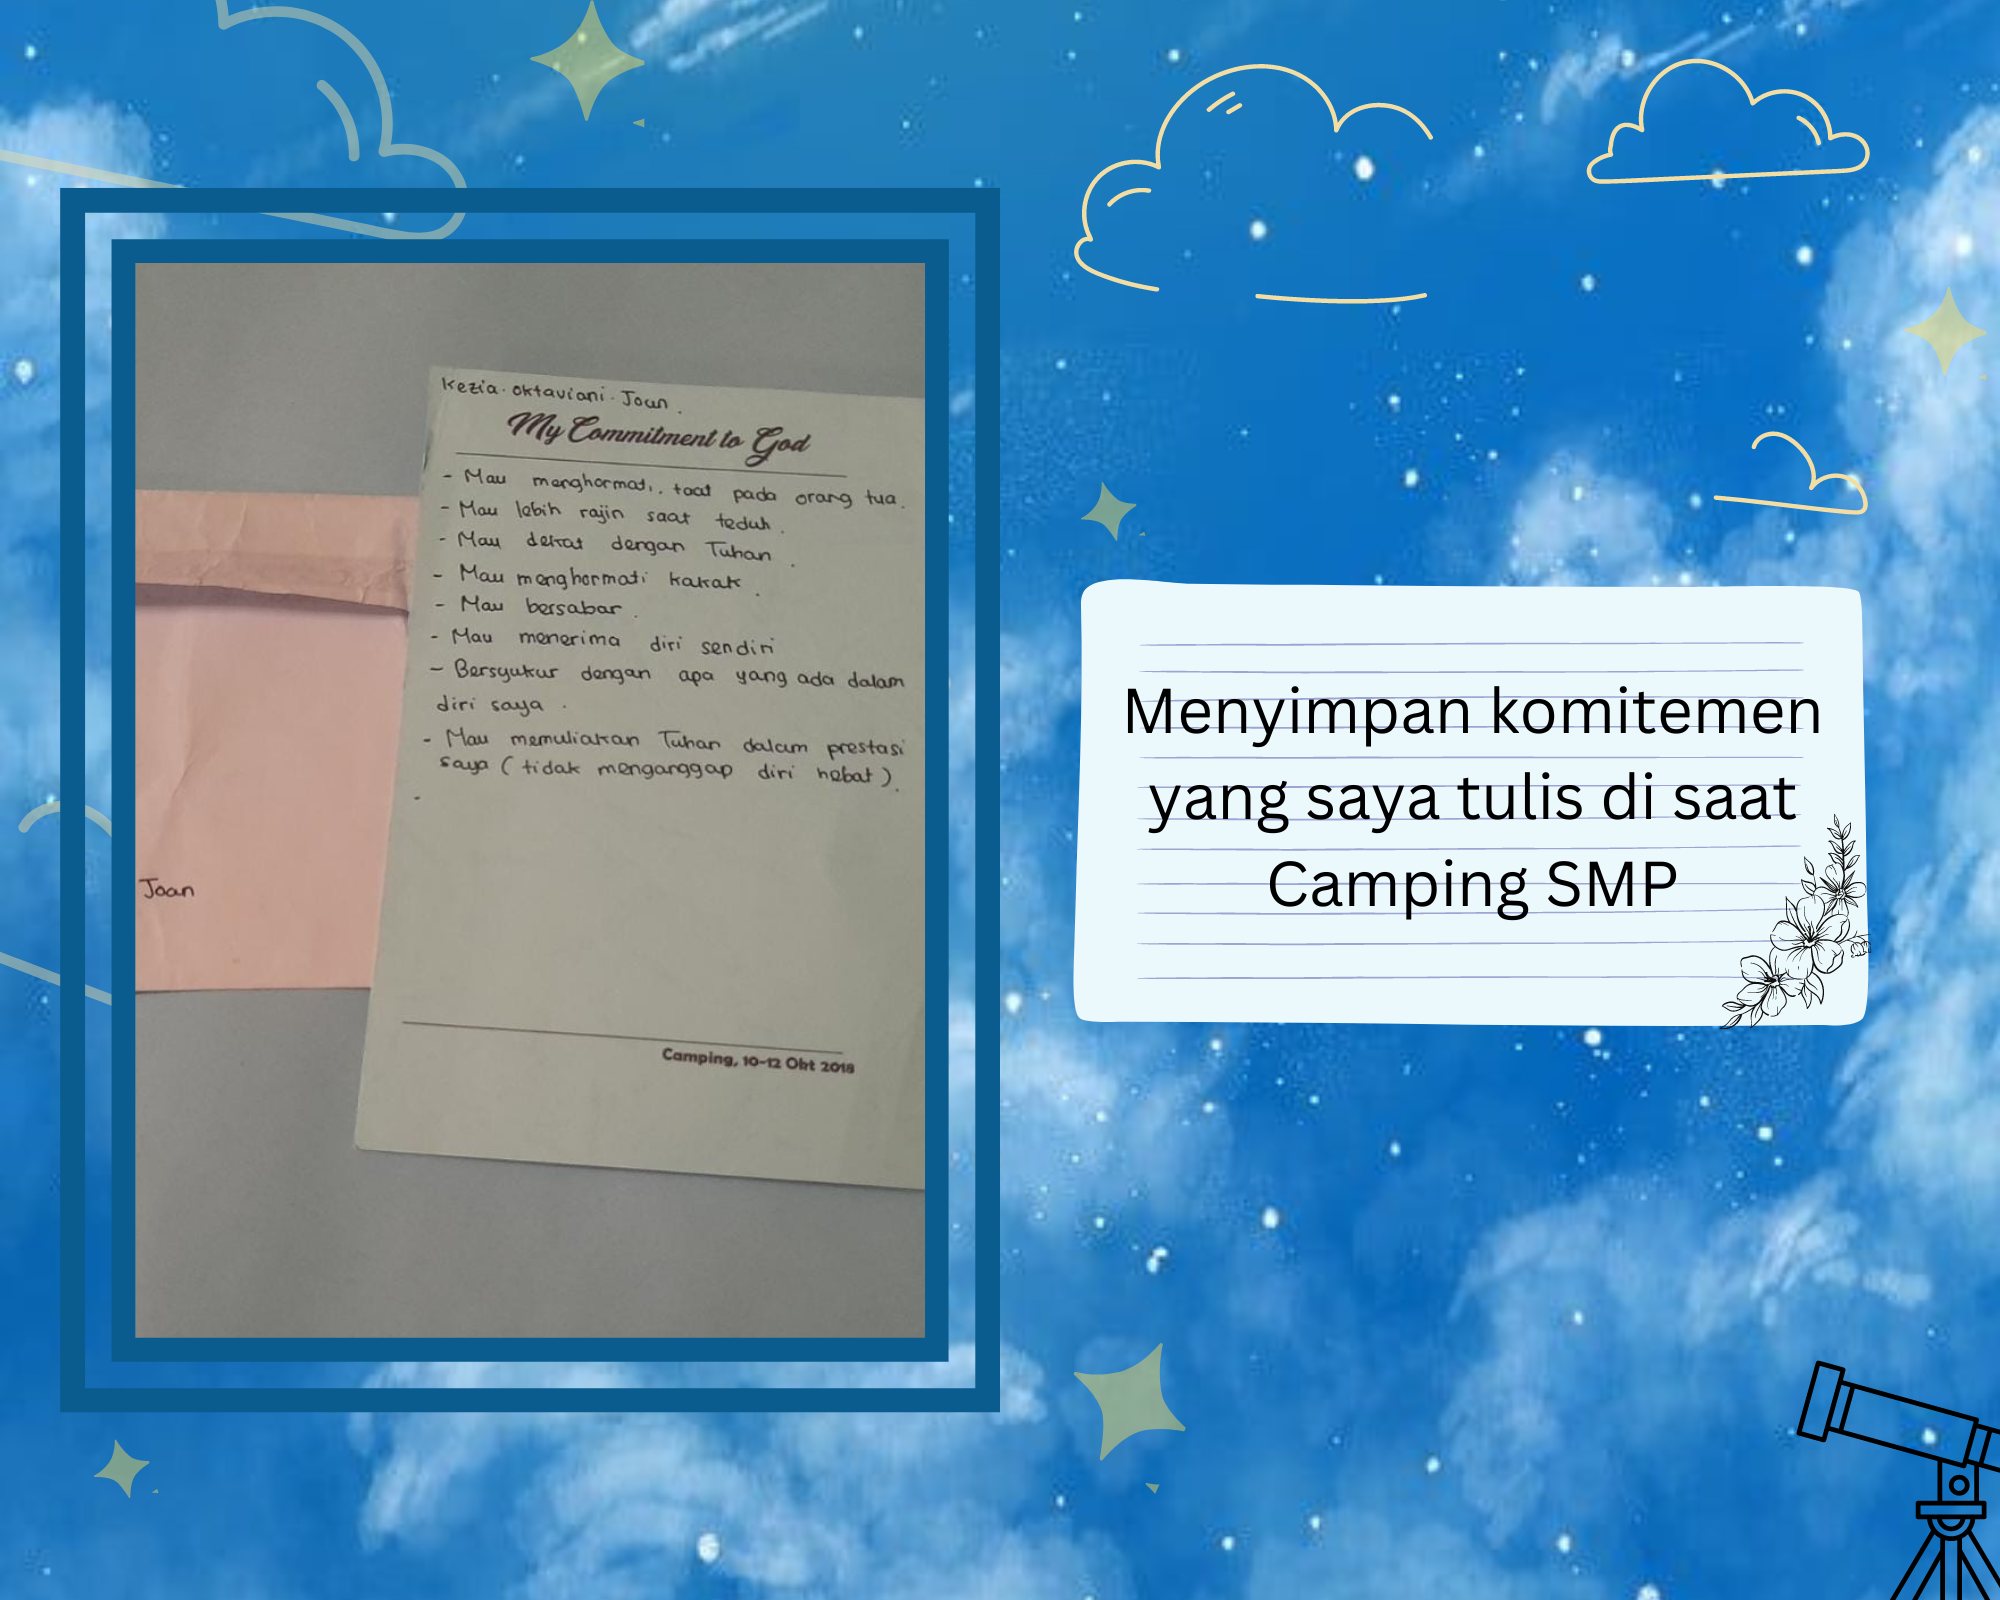 Kezia. Oktaviani. Joan.
My Commitment to God
- Mau menghormati, taat pada orang tua.
- Mau lebih rajin saat teduh.
- Mau dekat dengan Tuhan.
- Mau menghormati kakak.
- Mau bersabar.
- Mau menerima diri sendiri
- Bersyukur dengan apa yang ada dalam
diri saya.
- Mau memuliakan Tuhan dalam prestasi
saya (tidak menganggap diri hebat).
-
Joan
Camping, 10-12 Okt 2018
Menyimpan komitemen
yang saya tulis di saat
Camping SMP